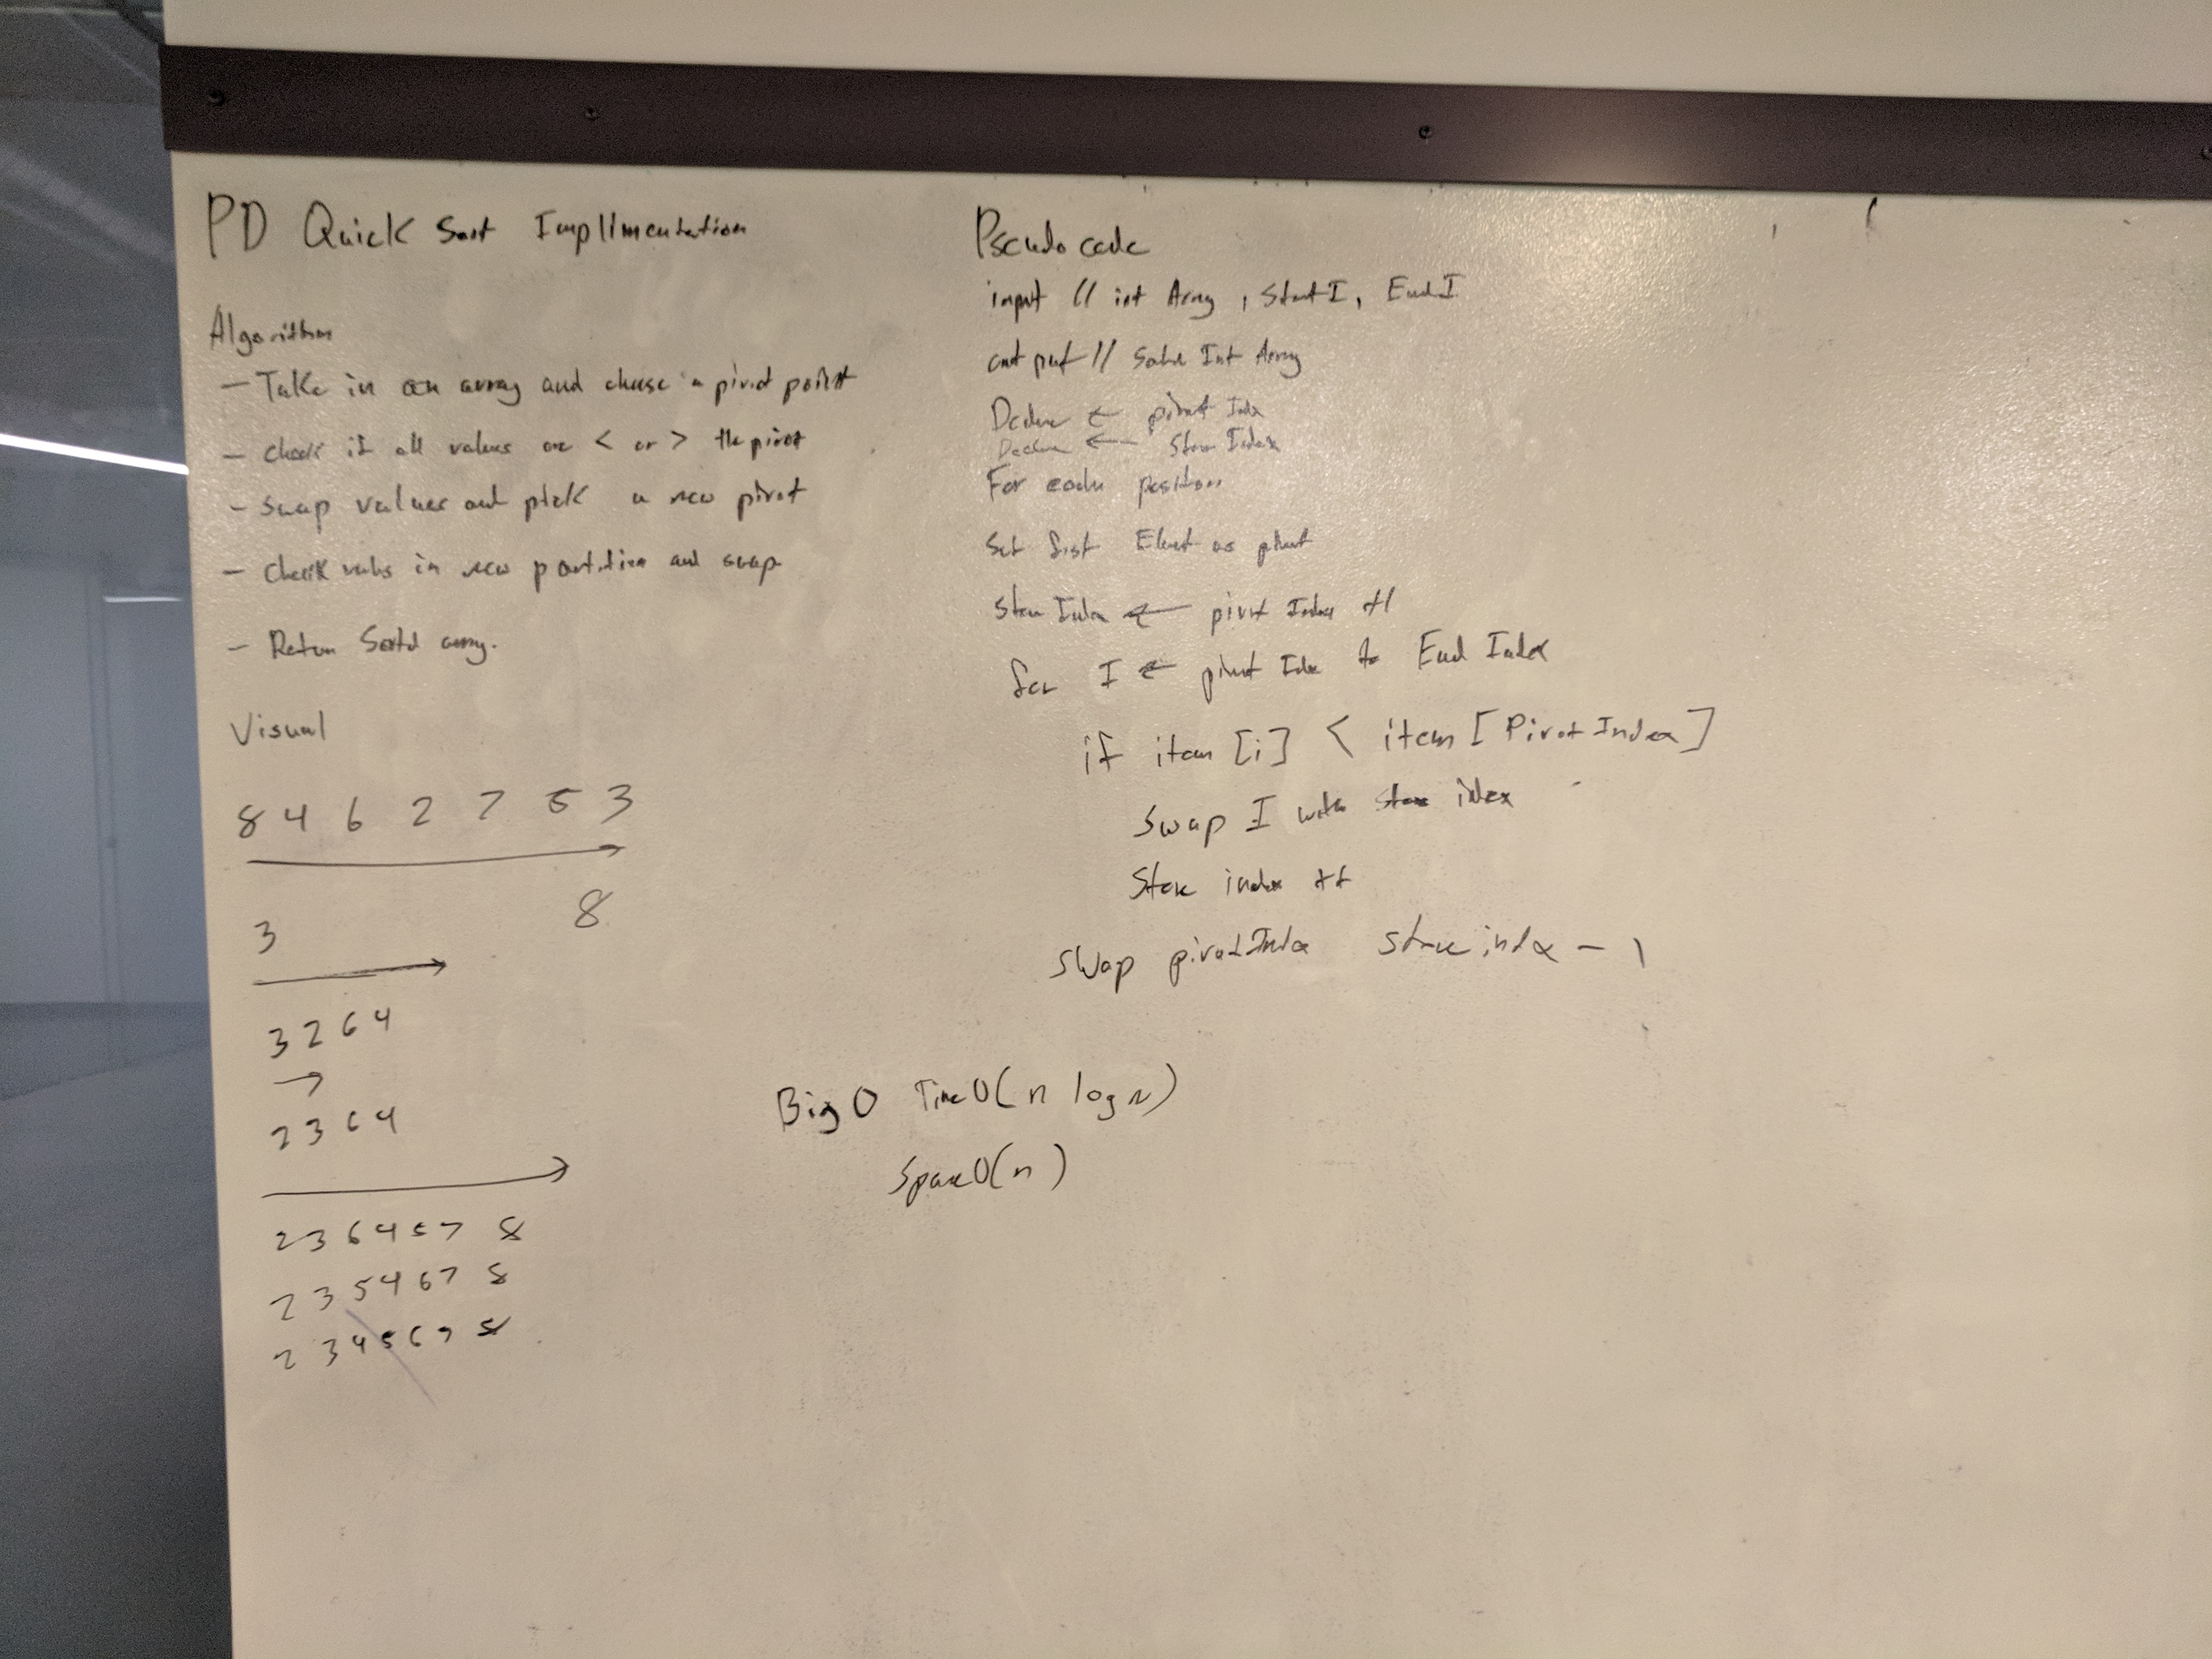 PD Quick Sort Implimentation
Algorithm
- Take in an array and chose a pivot point
- Check if all values are < or > the pivot
- Swap values and pick a new pivot
- Check vals in new partition and swap
- Return Sortd array.
Visual
8 4 6 2 7 5 3
3 8
3 2 6 4
2 3 6 4
2 3 6 4 5 7 8
2 3 5 4 6 7 8
2 3 4 5 6 7 8
Pseudo code
input // int Array , Start I, End I
output // Int Array
Declare ← pivot Index
Declare ← Store Index
For each position
Set first as pivot
Store Index ← pivot Index +1
for I ← pivot Index to End Index
if item [i] < item [PivotIndex]
Swap I with store index
Store index ++
Swap pivotIndex store index - 1
Big O Time O(n log n)
Space O(n)